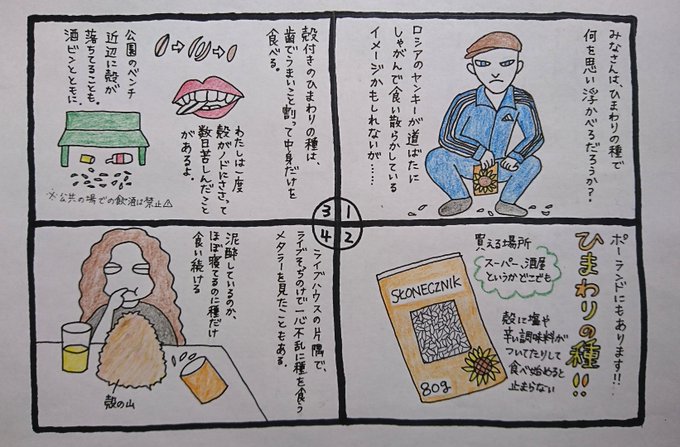 みなさんは、ひまわりの種で
何を思い浮かべるだろうか?
ロシアのヤンキーが道ばたに
しゃがんで食い散らかしている
イメージかもしれないが……
1
2
3
4
ポーランドにもあります!!
ひまわりの種!!
買える場所
スーパー、酒屋
というかどこでも
SŁONECZNIK
80g
殻に塩や
辛い調味料が
ついてたりして
食べ始めると
止まらない
殻付きのひまわりの種は、
歯でうまいこと割って中身だけを
食べる。
わたしは一度
殻がノドにささって
数日苦しんだこと
があるよ。
公園のベンチ
近辺に殻が
落ちてることも。
酒ビンとともに。
※公共の場での飲酒は禁止⚠
ライブハウスの片隅で、
ライブそっちのけで一心不乱に種を食う
メタラーを見たこともある。
泥酔しているのか、
ほぼ寝てるのに種だけ
食い続ける
殻の山